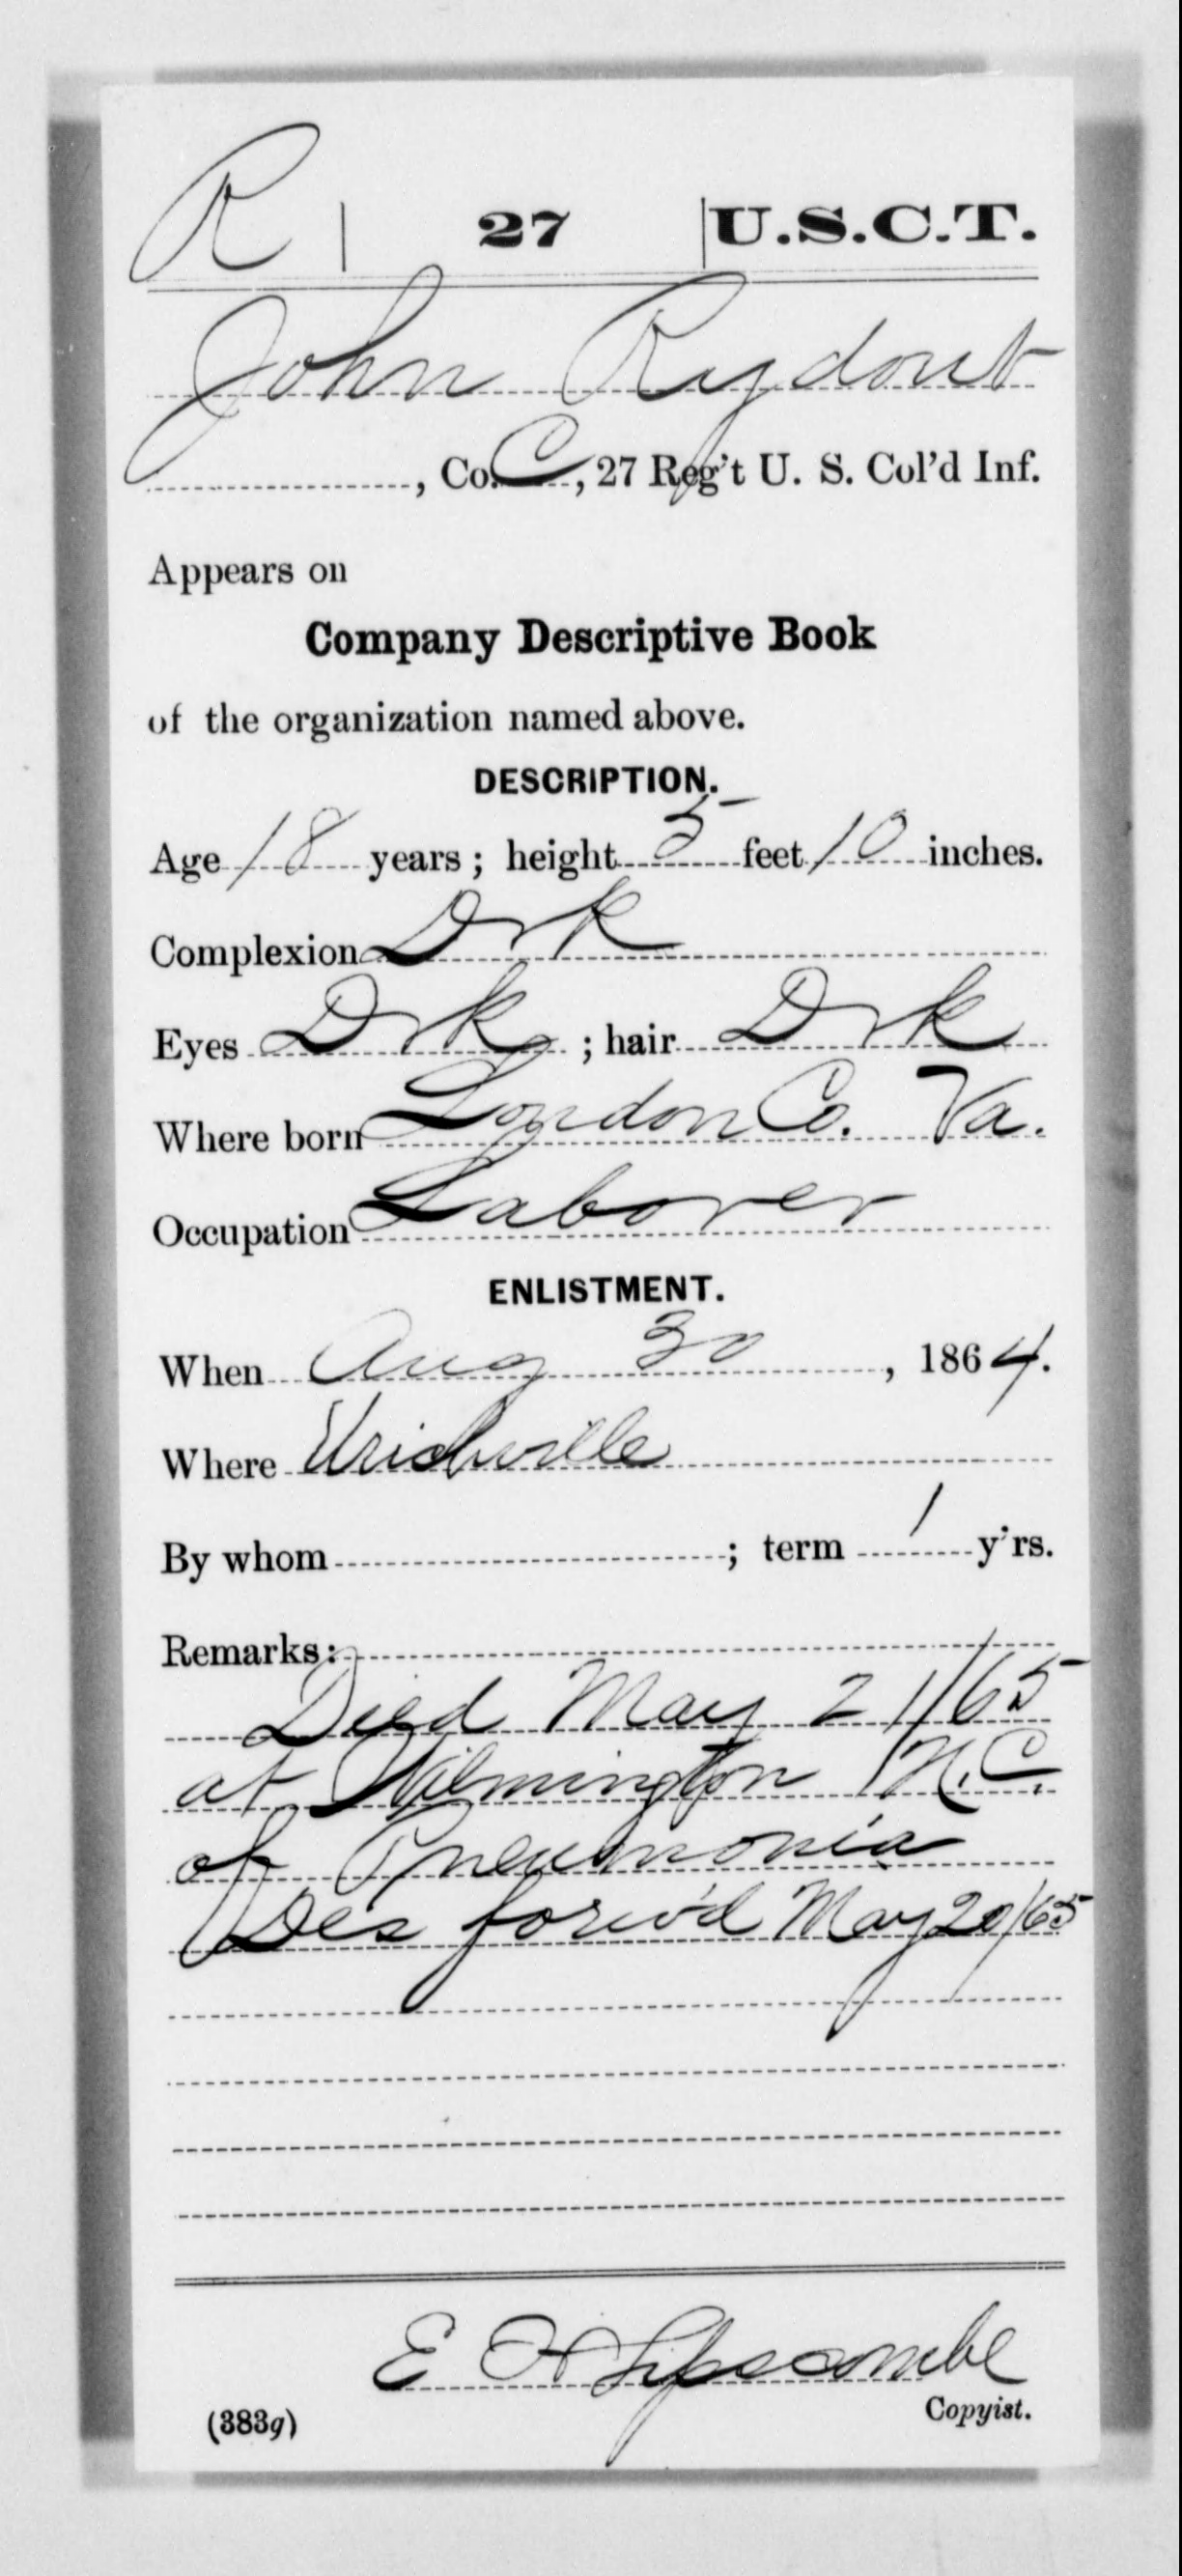 R | 27 | U.S.C.T.
John Rydout
, Co. C, 27 Reg't U. S. Col'd Inf.
Appears on
Company Descriptive Book
of the organization named above.
DESCRIPTION.
Age 18 years; height 5 feet 10 inches.
Complexion Drk
Eyes Drk; hair Drk
Where born Loudon Co. Va.
Occupation Laborer
ENLISTMENT.
When Aug 30, 1864.
Where Urichville
By whom ; term 1 y'rs.
Remarks:
Died May 21/65
at Wilmington N.C.
of Pneumonia
Des forw'd May 20/65
E H Lipscombe
Copyist.
(383g)